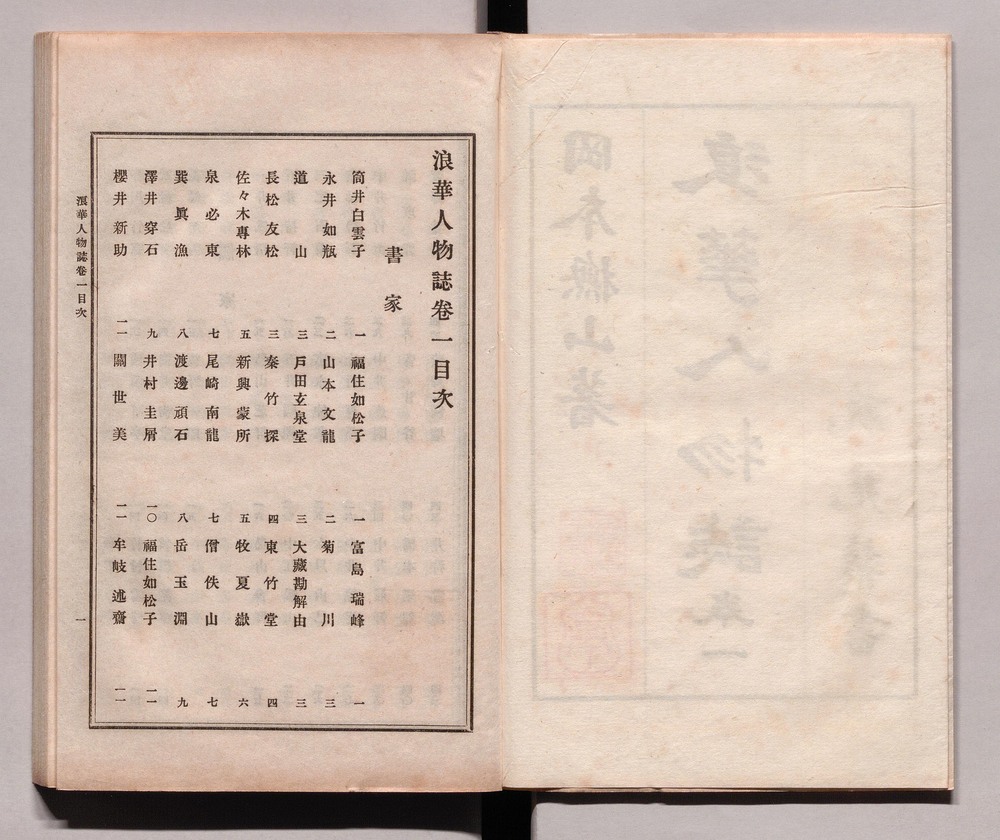 浪華人物誌卷一目次
書家
筒井白雲子 一 福住如松子 一 富島瑞峰 一
永井如瓶 二 山本文龍 二 菊川 三
道山 三 戸田玄泉堂 三 大藏勘解由 三
長松友松 三 秦竹探 四 東竹堂 四
佐々木專林 五 新興蒙所 五 牧夏嶽 六
泉必東 七 尾崎南龍 七 僧佚山 七
巽眞漁 八 渡邊頑石 八 岳玉淵 九
澤井穿石 九 井村圭屑 一〇 福住如松子 一一
櫻井新助 一一 關世美 一一 牟岐述齋 一一
浪華人物誌卷一目次 一